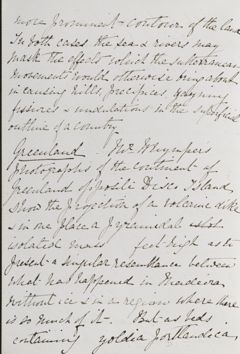 more prominent contour of the land
In both cases the sea & rivers may
mask the effects which the subterranean
movements would otherwise bring about
in causing hills, precipices, yawning
fissures & undulations in the superficial
outline of a country.
Greenland. Mr Whymper's
photographs of the continent of
Greenland opposite Disco Island
show the projection of a volcanic dike
& in one place a pyramidal
isolated mass feet high as to
present a singular resemblance between
what has happened in Madeira
without ice & in a region where there
is so much of it. But as beds
containing yoldia